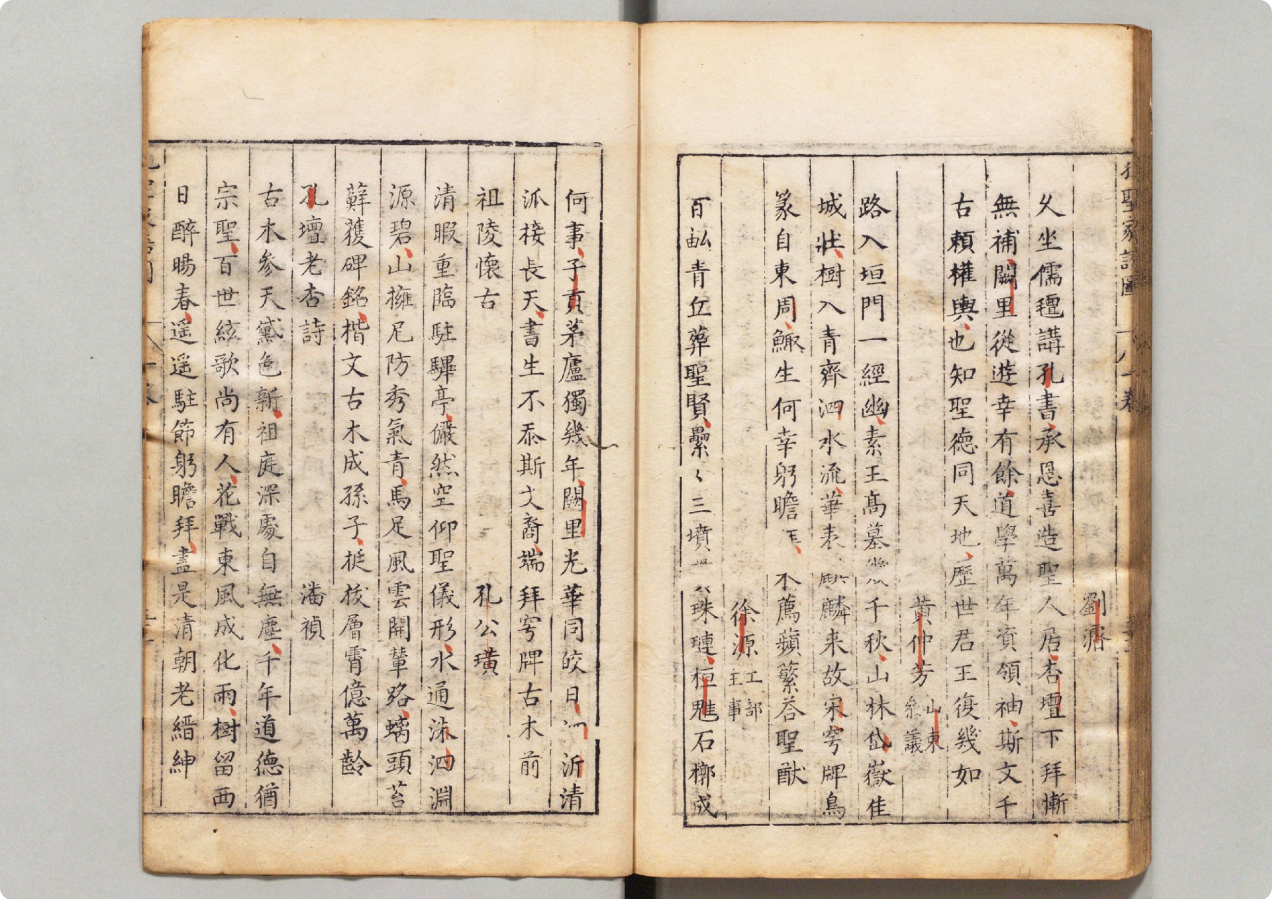 聖家譜圖 八卷
劉濟
久坐儒氊講孔書承恩喜造聖人居杏壇下拜慚
無補闕里從遊幸有餘道學萬年資領袖斯文千
古賴權輿也知聖德同天地歷世君王復幾如
黃仲芳 山東參議
路入垣門一經幽素王高墓幾千秋山林岱嶽佳
城壯樹入青齊泗水流華表麒麟來故宋穹牌鳥
篆自東周鯫生何幸躬瞻 不薦蘋蘩荅聖猷
徐源 工部主事
百畝青丘葬聖賢纍〻三墳 珠璉桓魋石槨成
何事子貢茅廬獨幾年闕里光華同皎日泗沂清
泒接長天書生不忝斯文裔端拜穹牌古木前
祖陵懷古 孔公璜
清暇重臨駐驆亭儼然空仰聖儀形水通洙泗淵
源碧山擁尼防秀氣青馬足風雲開輦路螭頭苔
蘚護碑銘楷文古木成孫子挺拔層霄億萬齡
孔壇老杏詩 潘禎
古木參天黛色新祖庭深處自無塵千年道德猶
宗聖百世絃歌尚有人花戰東風成化雨樹留西
日醉暘春遥遥駐節躬瞻拜盡是清朝老縉紳